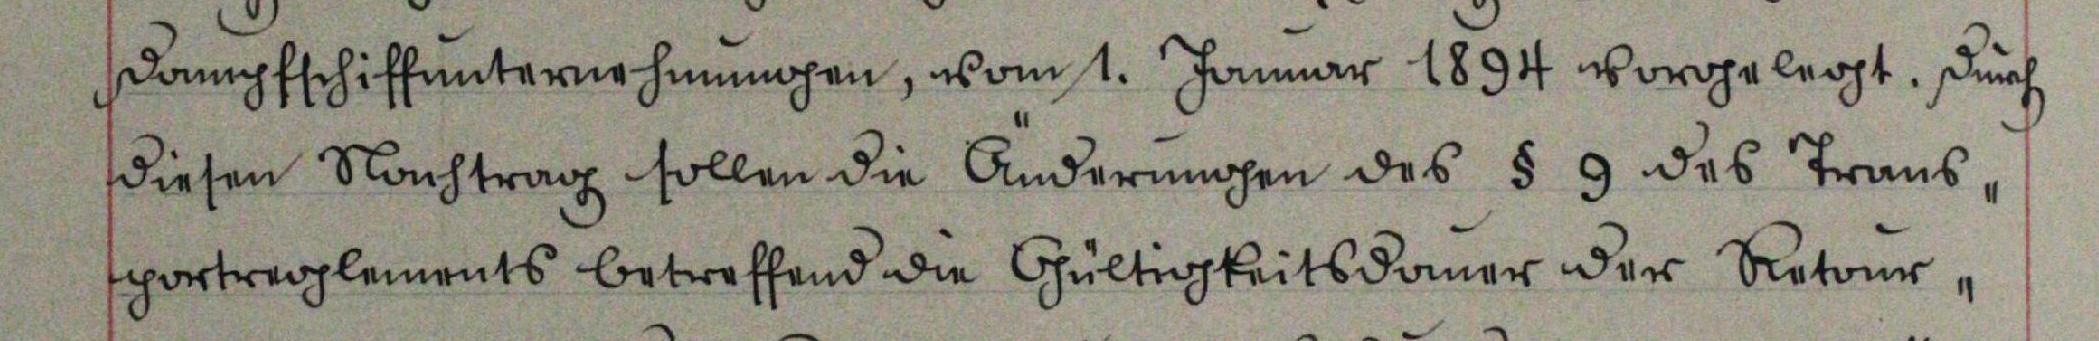 Dampfschiffunternehmungen, vom 1. Januar 1894 vorgelegt. Durch
diesen Nachtrag sollen die Änderungen des § 9 des Trans„
portreglements betreffend die Gültigkeitsdauer der Retour„